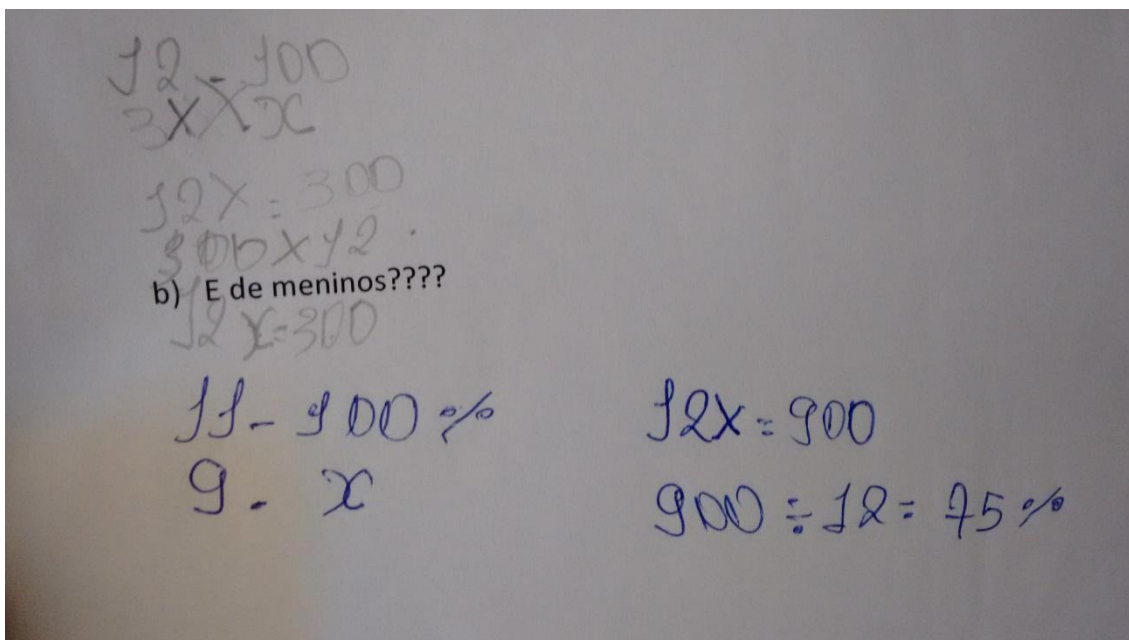 12 - 100
3 X x
12x = 300
300 x 12
b) E de meninos????
12x = 300
11 - 100 %
9 - x
12x = 900
900 ÷ 12 = 75 %